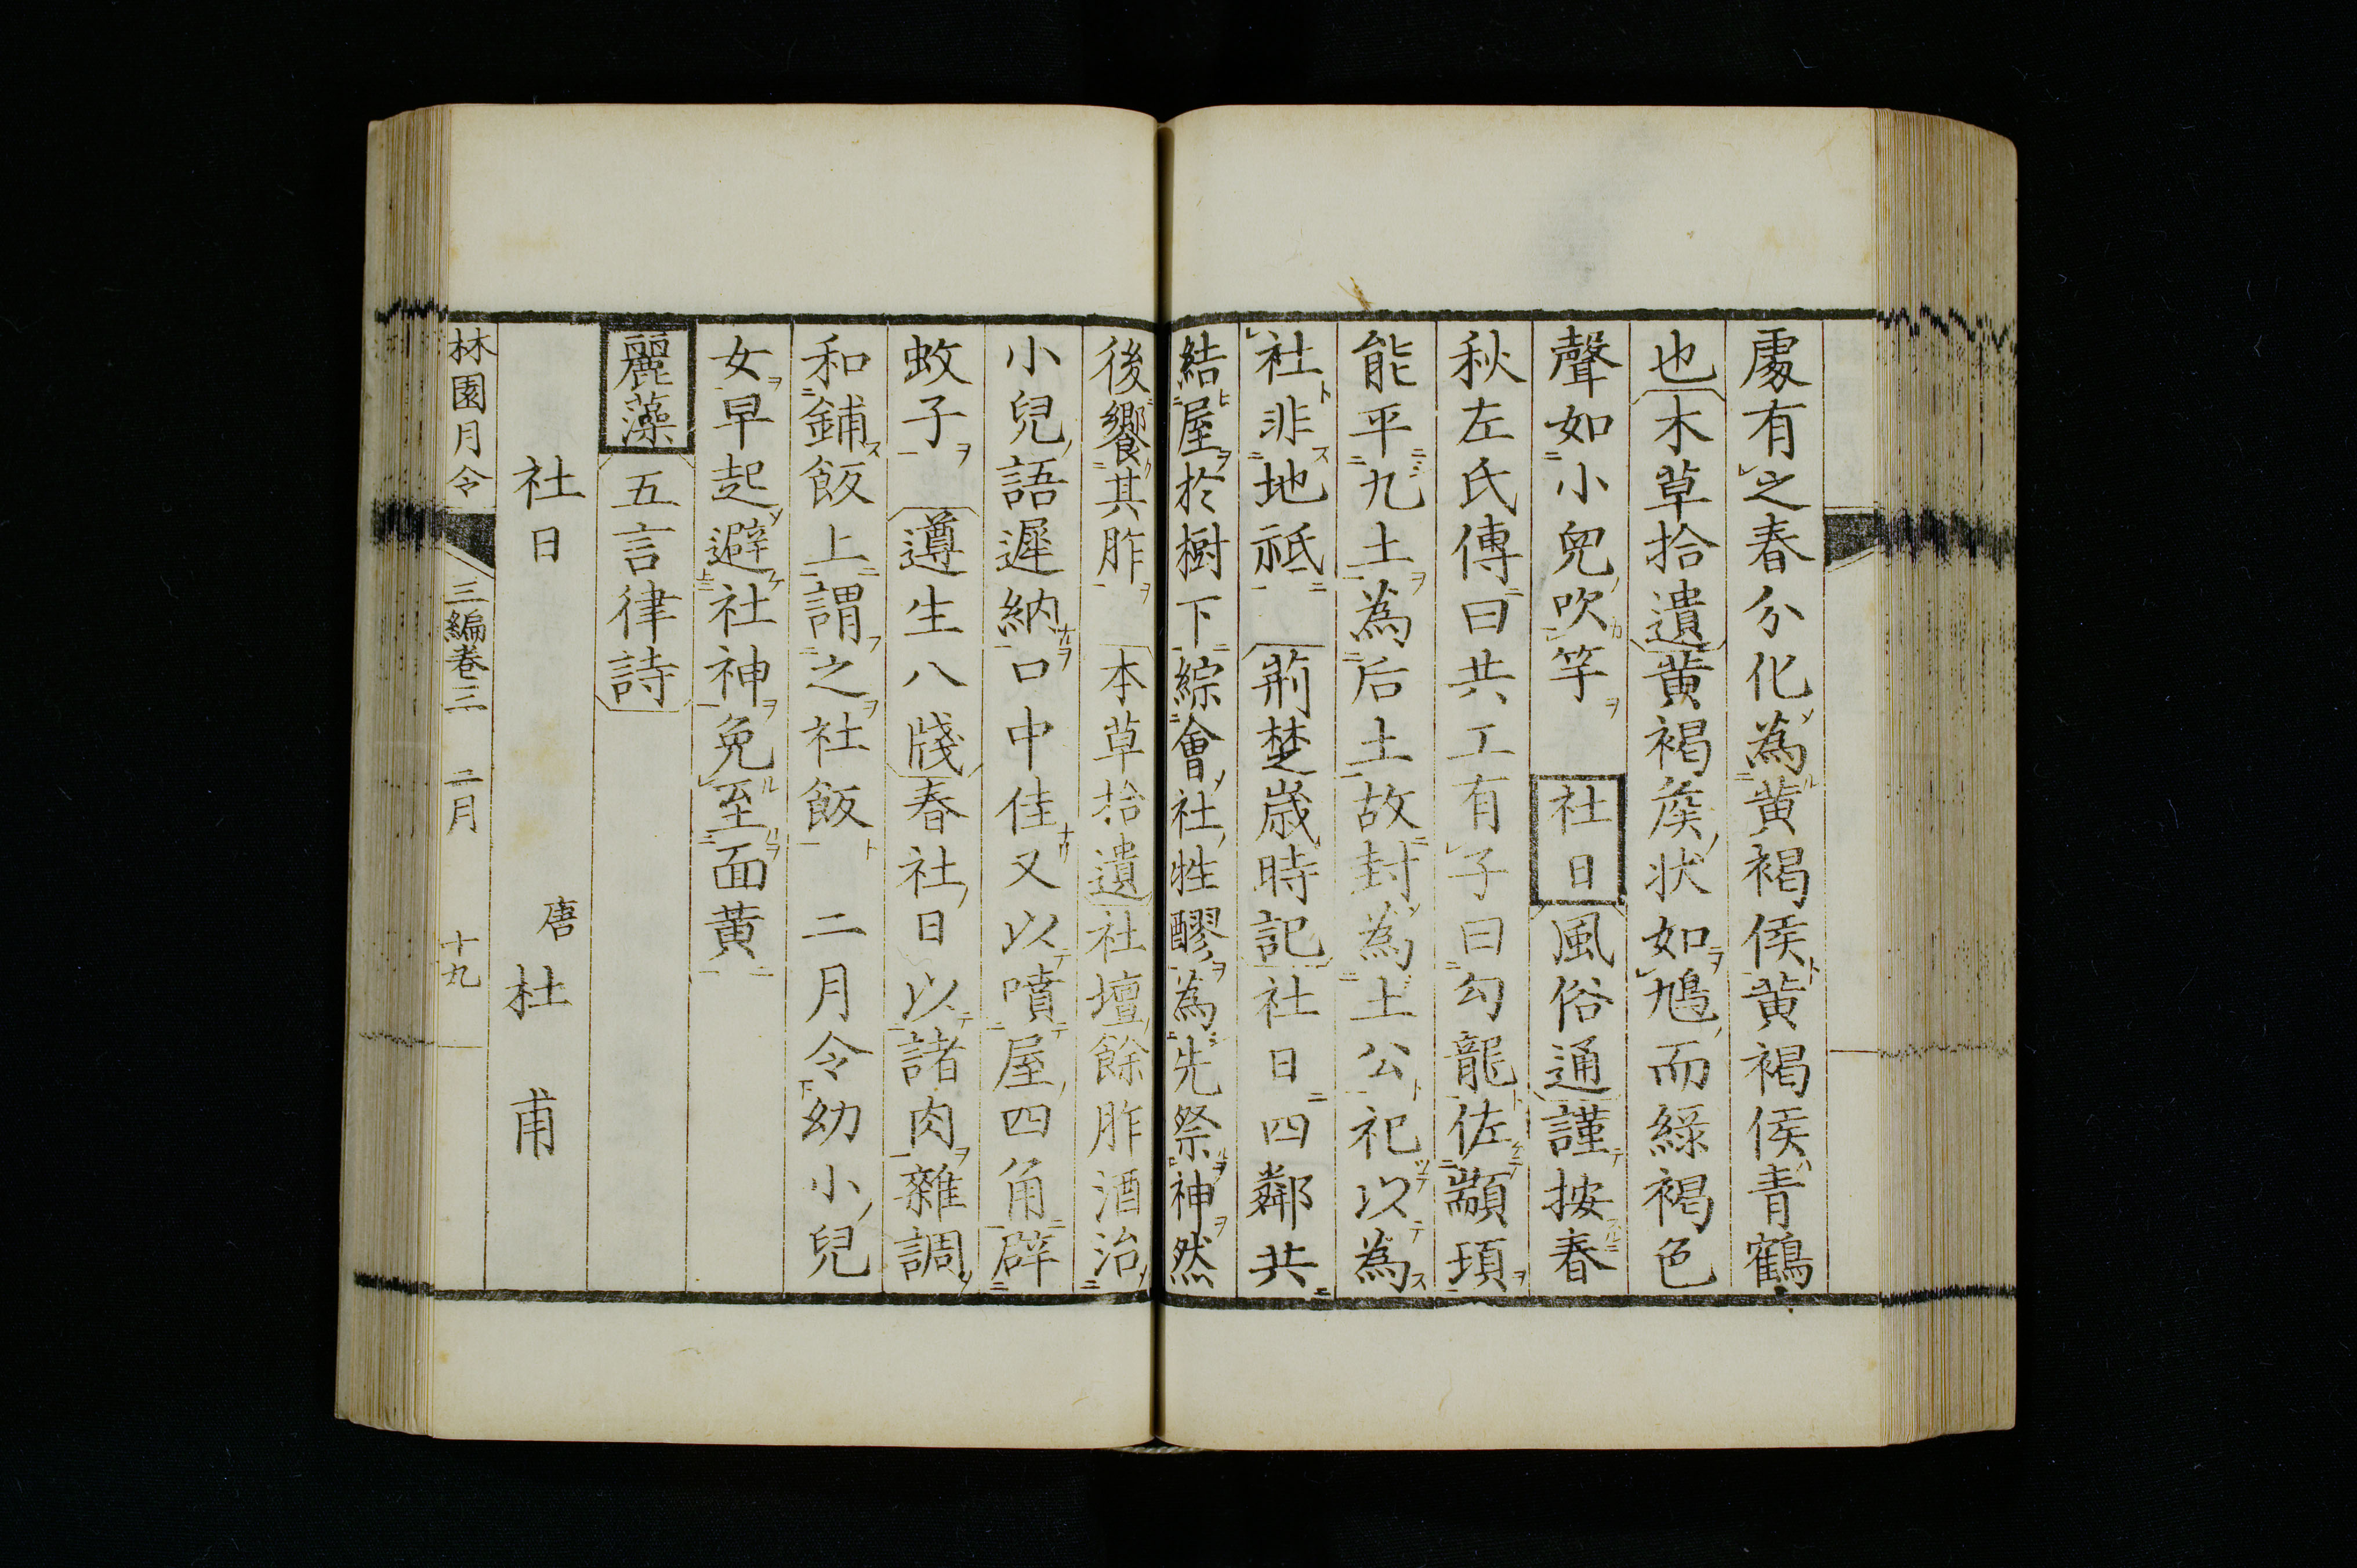 處有之春分化為黄褐侯黄褐侯青鶴
也木草拾遺黄褐矦状如鳩而緑褐色
聲如小兒吹竽　社日　風俗通謹按春
秋左氏傳曰共工有子曰勾龍佐顓頊
能平九土為后土故封為土公祀以為
社非地祇　荊楚歳時記社日四鄰共
結屋於樹下綜會社牲醪為先祭神然
後饗其胙　本草拾遺社壇餘胙酒治
小兒語遲納口中佳又以噴屋四角辟
蚊子　遵生八牋春社日以諸肉雜調
和鋪飯上謂之社飯　二月令幼小兒
女早起避社神免至面黄
麗藻　五言律詩
社日　唐　杜甫
林園月令　三編巻三　二月　十九